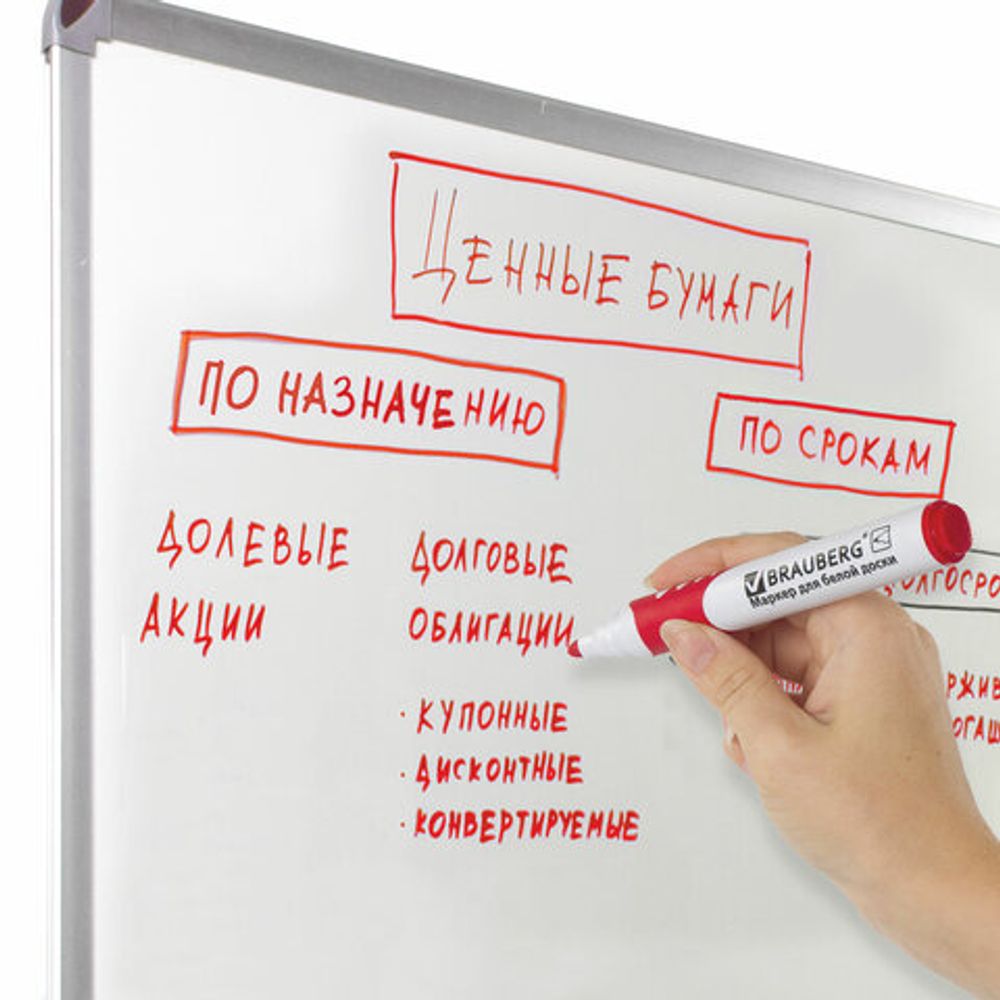 Ценные бумаги
по назначению
по срокам
долевые
акции
долговые
облигации
· купонные
· дисконтные
· конвертируемые
BRAUBERG
Маркер для белой доски